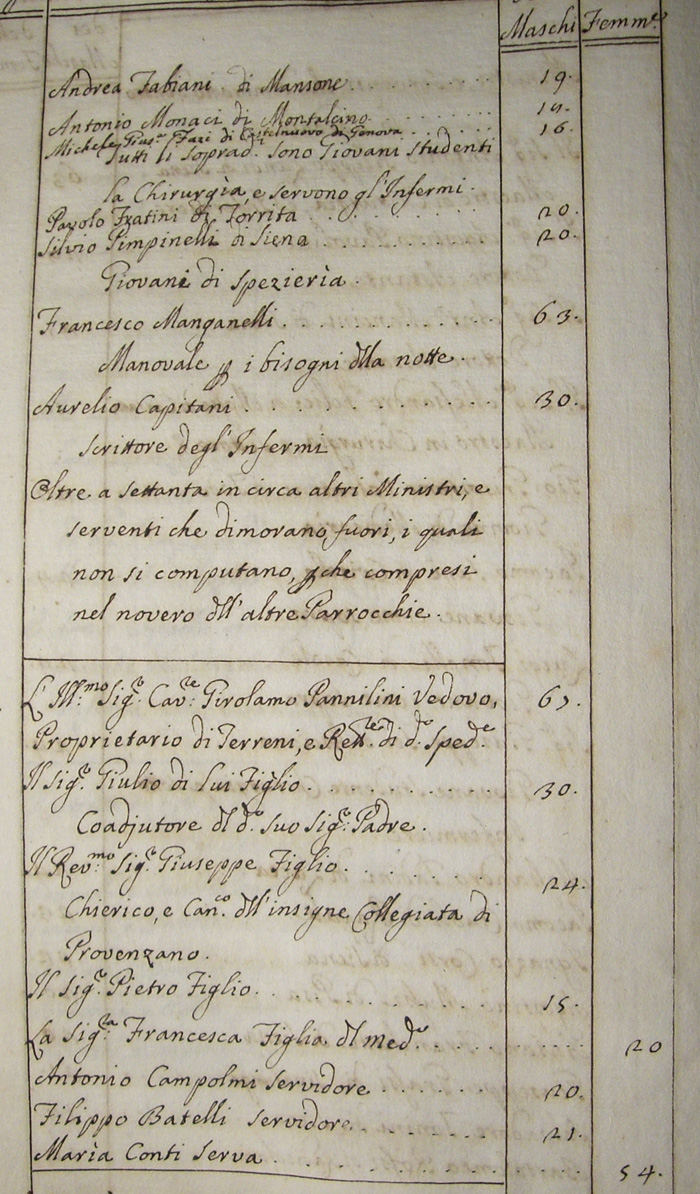 Maschi Femm.e
Andrea Fabiani di Mansone 19.
Antonio Monaci di Montalcino
Michele Fazi di Castelnuovo di Genova 16.
Tutti li soprad.i sono Giovani studenti
la Chirurgìa, e servono gl'Infermi.
Pavolo Fratini di Torrita 20.
Silvio Pimpinelli di Siena 20.
Giovani di spezierìa.
Francesco Manganelli 63.
Manovale p i bisogni dlla notte.
Aurelio Capitani 30.
scrittore degl'Infermi
Oltre a settanta in circa altri Ministri, e
serventi che dimorano fuori, i quali
non si computano, pche compresi
nel novero dll'altre Parrocchie.
L'Ill.mo Sig.r Cav.re Girolamo Pannilini Vedovo,
Proprietario di Terreni, e Rett.re di d.o Sped.e
Il Sig.r Giulio di lui Figlio 30.
Coadjutore dl d.o suo Sig.r Padre.
Il Rev.mo Sig.r Giuseppe Figlio 24.
Chierico, e Can.co dll'insigne Collegiata di
Provenzano.
Il Sig.r Pietro Figlio 15.
La Sig.ra Francesca Figlia dl med.o 20
Antonio Campolmi servidore 20.
Filippo Batelli servidore 21.
Marìa Conti serva 54.